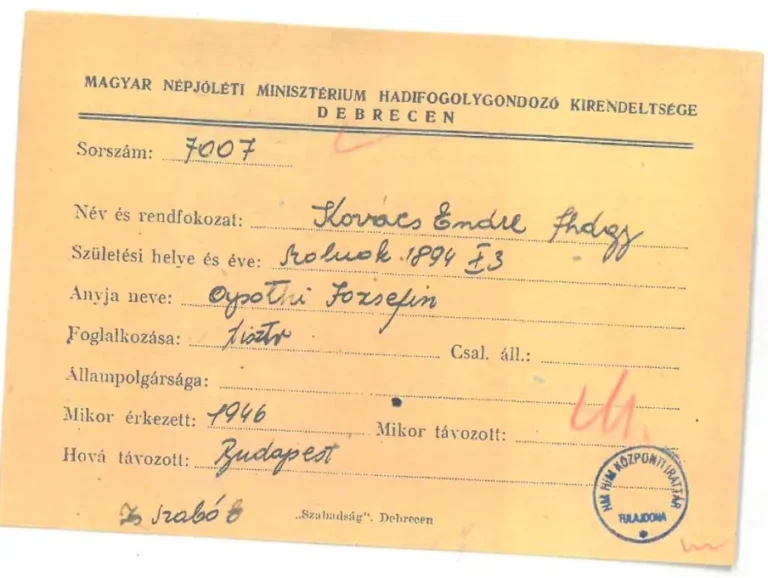 MAGYAR NÉPJÓLÉTI MINISZTÉRIUM HADIFOGOLYGONDOZÓ KIRENDELTSÉGE
DEBRECEN
Sorszám: 7007
Név és rendfokozat: Kovács Endre
Születési helye és éve: Szolnok 1894 I 3
Anyja neve: Jozsefin
Foglalkozása: tisztv Csal. áll.:
Állampolgársága:
Mikor érkezett: 1946 Mikor távozott:
Hová távozott: Budapest
Szabó
„Szabadság”. Debrecen
HM HIM KÖZPONTI IRATTÁR
TULAJDONA